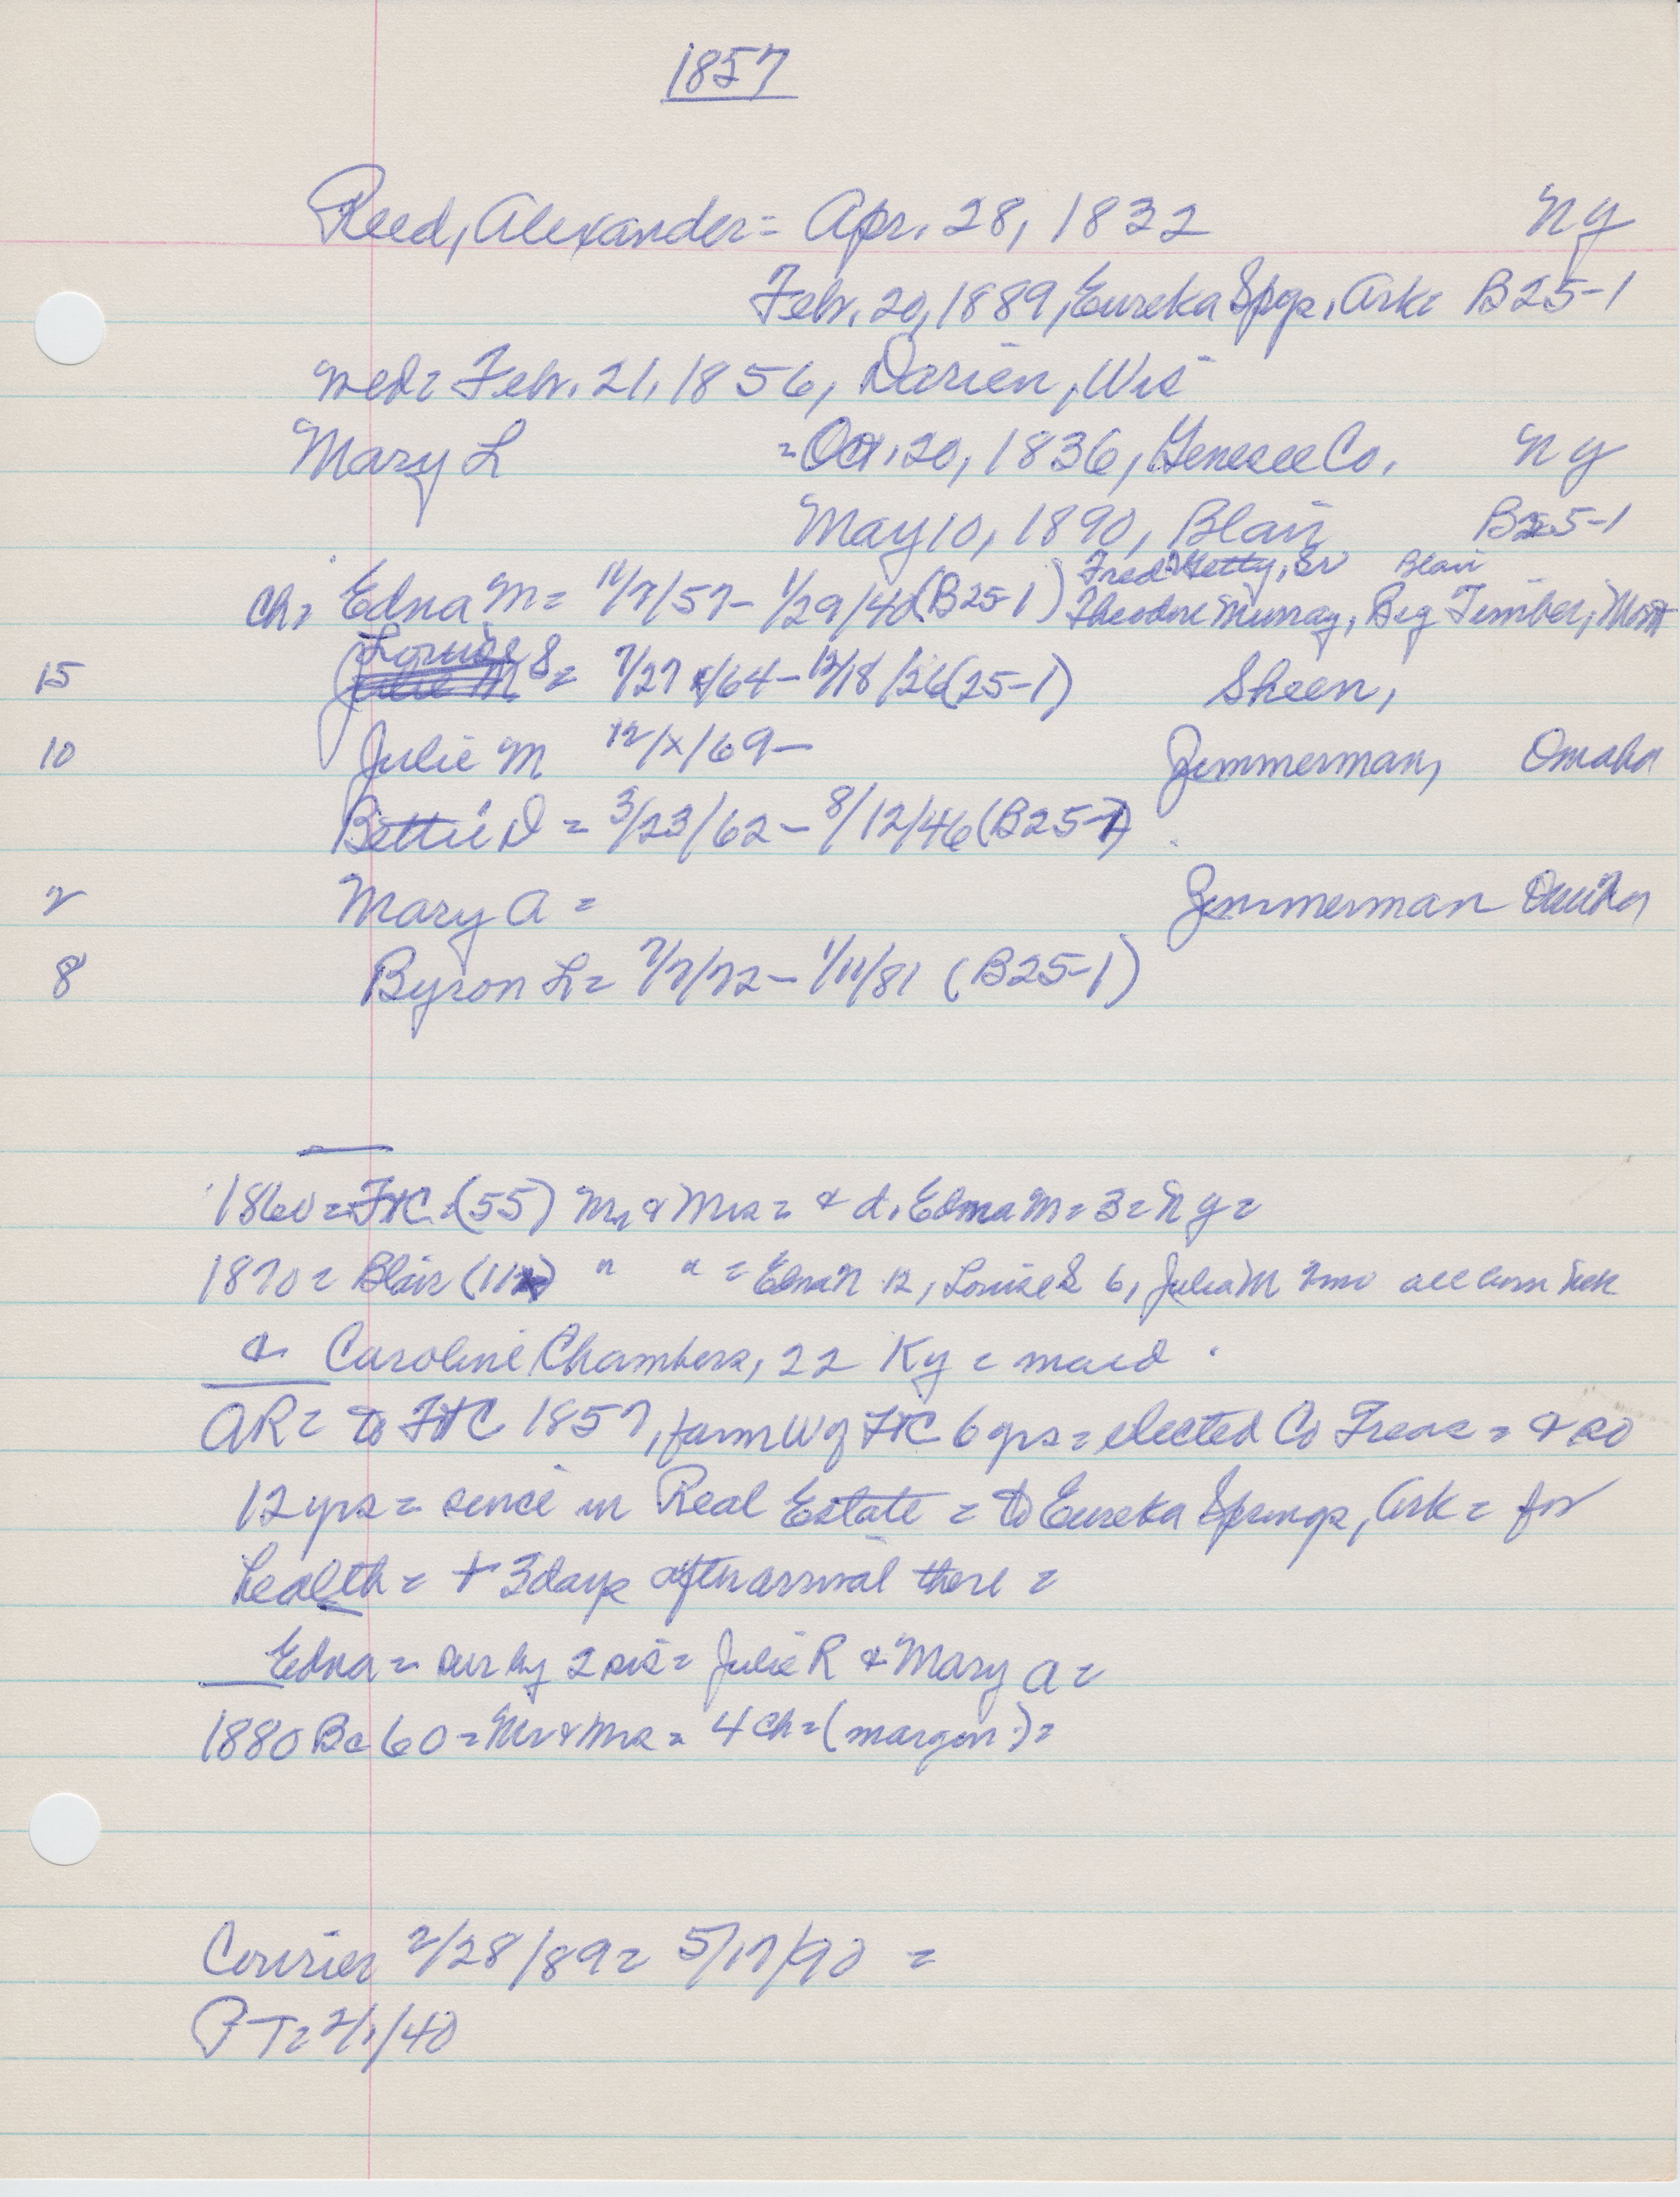 1857
Reed, Alexander = Apr. 28, 1832 NY
Feb. 20, 1889, Eureka Spgs, Ark = B25-1
med = Feb. 21, 1856, Darien, Wis
Mary L = Oct. 20, 1836, Genesee Co. NY
May 10, 1890, Blair B25-1
Fred Getty, Sr Blair
Ch: Edna M = 11/7/57 - 1/29/40 (B25-1) Theodore Murray, Big Timber, Mont
Louise
15 S = 7/27/64 - 12/18/26 (25-1) Sheen,
10 Julie M 12/x/69 - Zimmerman, Omaha
Bettie D = 3/23/62 - 8/12/46 (B25-1)
2 Mary A = Zimmerman Omaha
8 Byron L = 7/7/72 - 1/11/81 (B25-1)
1860 = FtC = (55) Mr & Mrs = & d. Edna M = 3 = NY =
1870 = Blair " " = Edna 12, Louise S 6, Julia M all born Neb
& Caroline Chambers, 22 Ky = maid.
AR = to FtC 1857, farm W of FtC 6 yrs = elected Co Treas = & so
12 yrs = since in Real Estate = to Eureka Springs, Ark = for
health = + 3 days after arrival there =
Edna = sur by 2 sis = Julie R & Mary A =
1880 B = 60 = Mr & Mrs = 4 ch = (margin) =
Courier 2/28/89 = 5/17/90 =
PT = 2/1/40